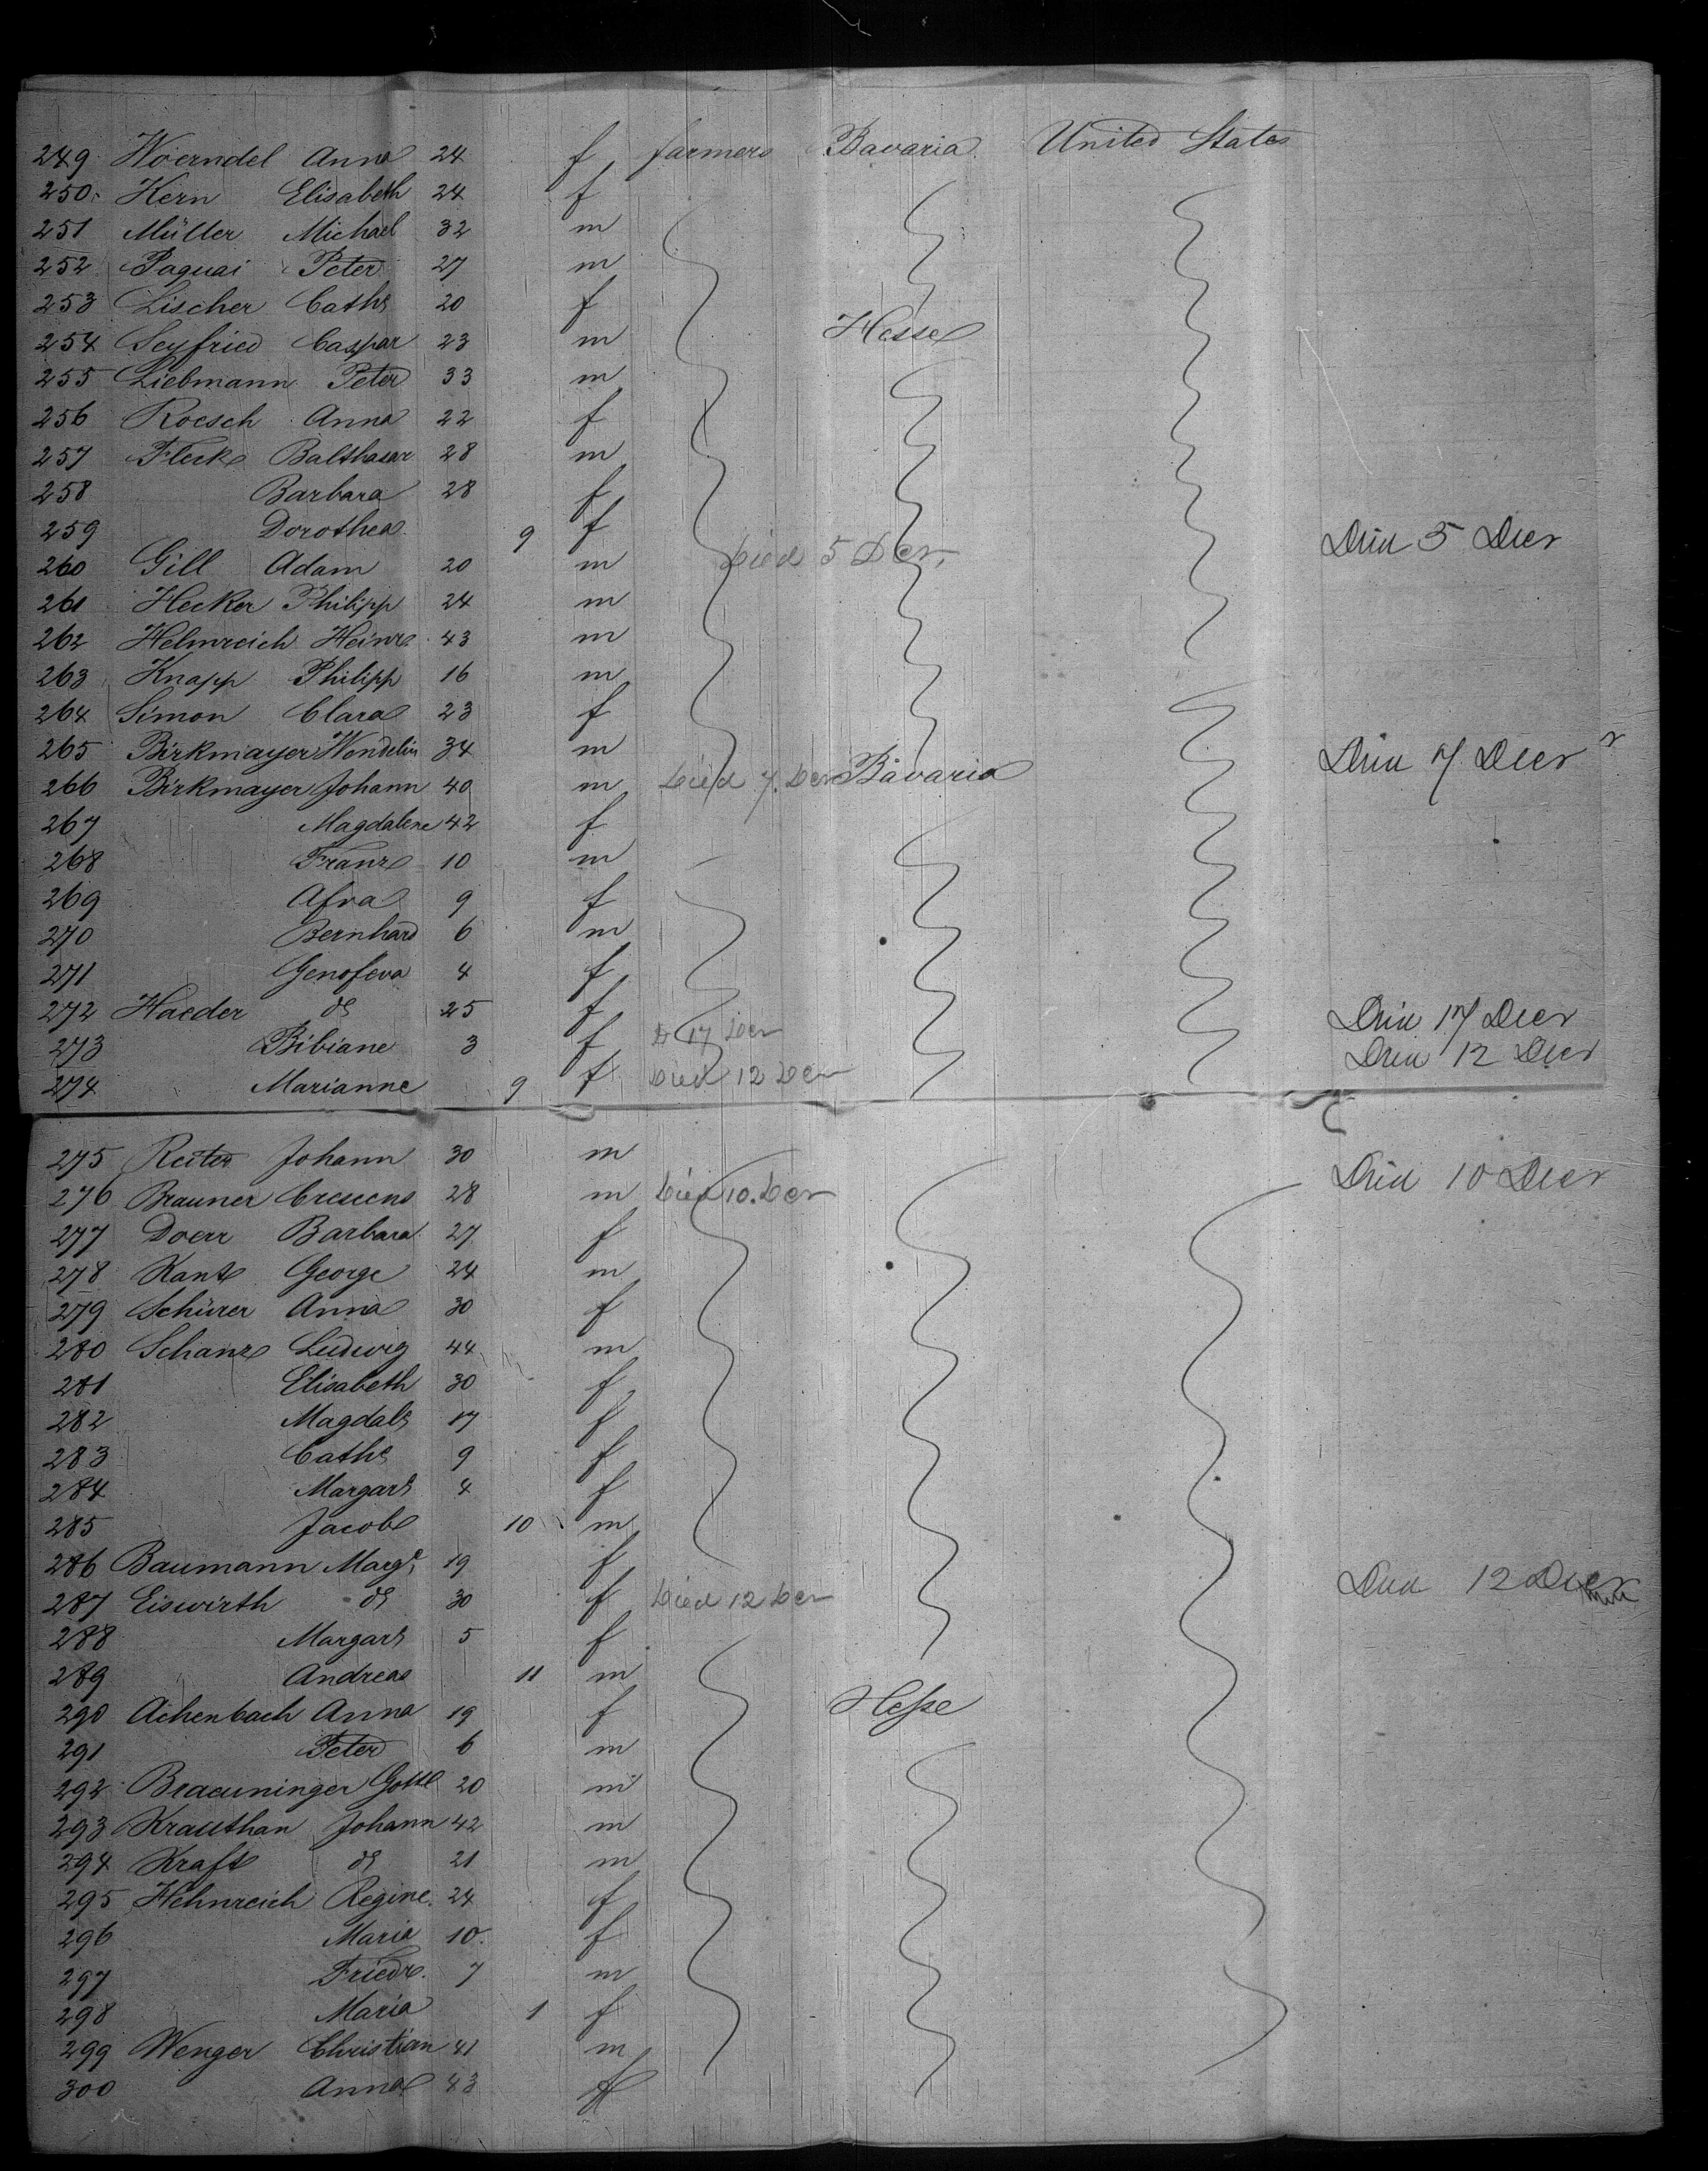 249 Woerndel Anna 24 f farmers Bavaria United States
250 Kern Elisabeth 24 f
251 Müller Michael 32 m
252 Paquai Peter 27 m
253 Lischer Cathe 20 f
254 Seyfried Caspar 23 m Hesse
255 Liebmann Peter 33 m
256 Roesch Anna 22 f
257 Fleck Balthasar 28 m
258 Barbara 28 f
259 Dorothea 9 f Died 5 Decr
260 Gill Adam 20 m Died 5 Decr
261 Hecker Philipp 24 m
262 Helmreich Heinr. 43 m
263 Knapp Philipp 16 m
264 Simon Clara 23 f
265 Birkmayer Wendelin 34 m Died 7 Decr
266 Birkmayer Johann 40 m Died 7. Decr Bavaria
267 Magdalene 42 f
268 Franz 10 m
269 Afra 9 f
270 Bernhard 6 m
271 Genofeva 4 f
272 Haeder do 25 f Died 17 Decr
273 Bibiane 3 f D 17 Decr Died 12 Decr
274 Marianne 9 f Died 12 Decr
275 Reiter Johann 30 m Died 10 Decr
276 Brauner Crescens 28 m Died 10. Decr
277 Doerr Barbara 27 f
278 Kant George 24 m
279 Schürer Anna 30 f
280 Schanz Ludwig 44 m
281 Elisabeth 30 f
282 Magdale 17 f
283 Cathe 9 f
284 Margare 4 f
285 Jacob 10 m
286 Baumann Marge 19 f Died 12 Decr
287 Eiswirth do 30 f Died 12 Decr
288 Margare 5 f
289 Andreas 11 m
290 Achenbach Anna 19 f Hesse
291 Peter 6 m
292 Braeuninger Gottl 20 m
293 Krauthan Johann 42 m
294 Kraft do 21 m
295 Helmreich Regine 24 f
296 Maria 10 f
297 Friedr. 7 m
298 Maria 1 f
299 Wenger Christian 41 m
300 Anna 43 f